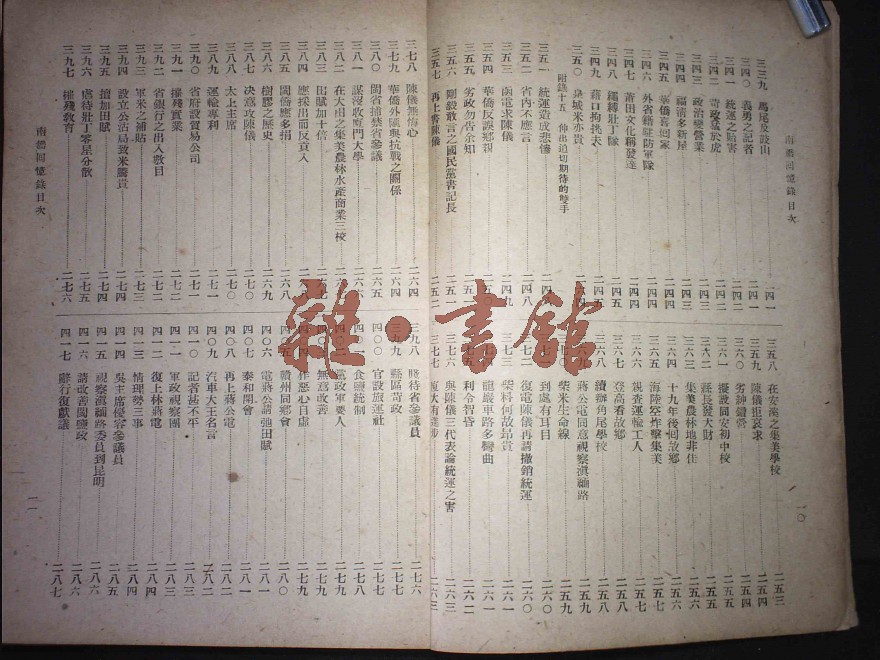 南僑回憶錄目次
三三九 馬尾及鼓山 二四一
三四〇 義勇之記者 二四一
三四一 統運之貽害 二四二
三四二 苛政猛於虎 二四二
三四三 政治變營業 二四三
三四四 福清多新屋 二四四
三四五 華僑喜回家 二四四
三四六 外省籍駐防軍隊 二四四
三四七 莆田文化稱發達 二四五
三四八 繩縛壯丁隊
三四九 藉口拘挑夫
三五〇 泉城米亦貴
附錄十五 伸出迫切期待的雙手
三五一 統運造成悲慘
三五二 省內不應言
三五三 函電求陳儀 二四九
三五四 華僑反誤鄉親
三五五 劣政勿告余知
三五六 剛毅敢言之國民黨書記長 二五一
三五七 再上書陳儀 二五二
三五八 在安溪之集美學校 二五三
三五九 陳儀拒哀求 二五四
三六〇 劣紳鑽營 二五五
三六一 擬設同安初中校 二五五
三六二 縣長發大財 二五五
三六三 集美農林地非佳 二五六
三六四 十九年後回故鄉 二五六
三六五 海陸空炸擊集美 二五六
三六六 視查運輸工人 二五七
三六七 登高看故鄉 二五八
三六八 續辦角尾學校 二五八
蔣公電同意視察滇緬路 二五九
柴米生命線 二五九
到處有耳目 二六〇
復電陳儀再請撤銷統運 二六〇
柴料何故昂貴 二六一
龍巖車路多彎曲 二六一
利令智昏 二六二
與陳儀三代表論統運之害 二六三
三七七
一〇
三七八 陳儀無悔心 二六四
三七九 華僑外匯與抗戰之關係 二六四
三八〇 閩省捕禁省參議 二六五
三八一 謀沒收廈門大學 二六六
三八二 在大田之集美農林水產商業三校
三八三 田賦加十倍
三八四 應採出而反貪入
三八五 閩僑應多捐 二六八
三八六 樹膠之歷史 二六九
三八七 決意攻陳儀 二七〇
三八八 太上主席 二七〇
三八九 運輸專利 二七一
三九〇 省府設貿易公司 二七一
三九一 摧殘實業 二七二
三九二 省銀行之出入數目 二七二
三九三 軍米之補貼 二七三
三九四 設立公沽局致米騰貴 二七四
三九五 擅加田賦 二七四
三九六 虐待壯丁零星分散 二七五
三九七 摧殘教育 二七六
三九八 賤待省參議員 二七六
三九九 縣區苛政 二七七
四〇〇 官設旅運社 二七七
食鹽統制
黨政軍要人 二七九
無意改善 二七九
作惡心自虛 二七九
贛州同鄉會 二八〇
四〇六 電蔣公請弛田賦 二八一
四〇七 泰和開會 二八一
四〇八 再上蔣公電 二八二
四〇九 汽車大王名言 二八二
四一〇 記者甚不平 二八三
四一一 軍政視察團 二八三
四一二 復上林蔣電 二八四
四一三 情理勢三事 二八四
四一四 吳主席優容參議員 二八五
四一五 視察滇緬路委員到昆明 二八六
四一六 請改善閩鹽政 二八六
四一七 辭行復獻議 二八七
南僑回憶錄目次
一一
雜·書館